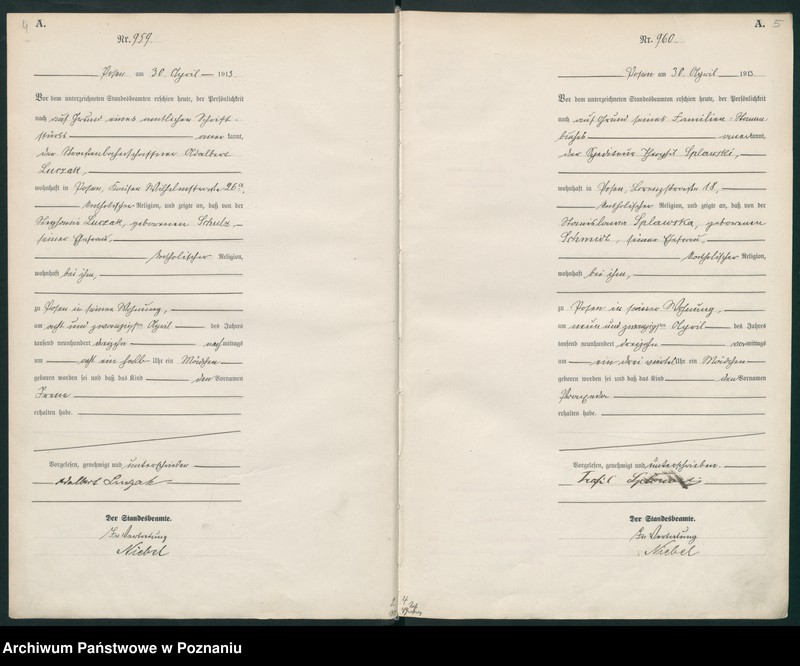 4 A.
Nr. 959.
Posen am 30 April 1913
Vor dem unterzeichneten Standesbeamten erschien heute, der Persönlichkeit
nach auf Grund eines amtlichen Schrift-
stücks anerkannt,
der Straßenbahnschaffner Adalbert
Luczak,
wohnhaft in Posen, Kaiser Wilhelmstraße 26a,
katholischer Religion, und zeigte an, daß von der
Stephanie Luczak, geborenen Schulz,
seiner Ehefrau,
katholischer Religion,
wohnhaft bei ihm,
zu Posen in seiner Wohnung,
am acht und zwanzigsten April des Jahres
tausend neunhundert dreizehn nachmittags
um acht ein halb Uhr ein Mädchen
geboren worden sei und daß das Kind den Vornamen
Irene
erhalten habe.
Vorgelesen, genehmigt und unterschrieben
Adalbert Luczak
Der Standesbeamte.
In Vertretung
Niebel
A. 5
Nr. 960
Posen am 30 April 1913
Vor dem unterzeichneten Standesbeamten erschien heute, der Persönlichkeit
nach auf Grund seines Familien-Stamm-
buches anerkannt,
der Spediteur Splawski,
wohnhaft in Posen, 18,
katholischer Religion, und zeigte an, daß von der
Stanislawa Splawska, geborenen
Schmidt, seiner Ehefrau,
katholischer Religion,
wohnhaft bei ihm,
zu Posen in seiner Wohnung,
am neun und zwanzigsten April des Jahres
tausend neunhundert dreizehn vormittags
um ein drei viertel Uhr ein Mädchen
geboren worden sei und daß das Kind den Vornamen
Praxeda
erhalten habe.
Vorgelesen, genehmigt und unterschrieben.
Der Standesbeamte.
In Vertretung
Niebel
Archiwum Państwowe w Poznaniu